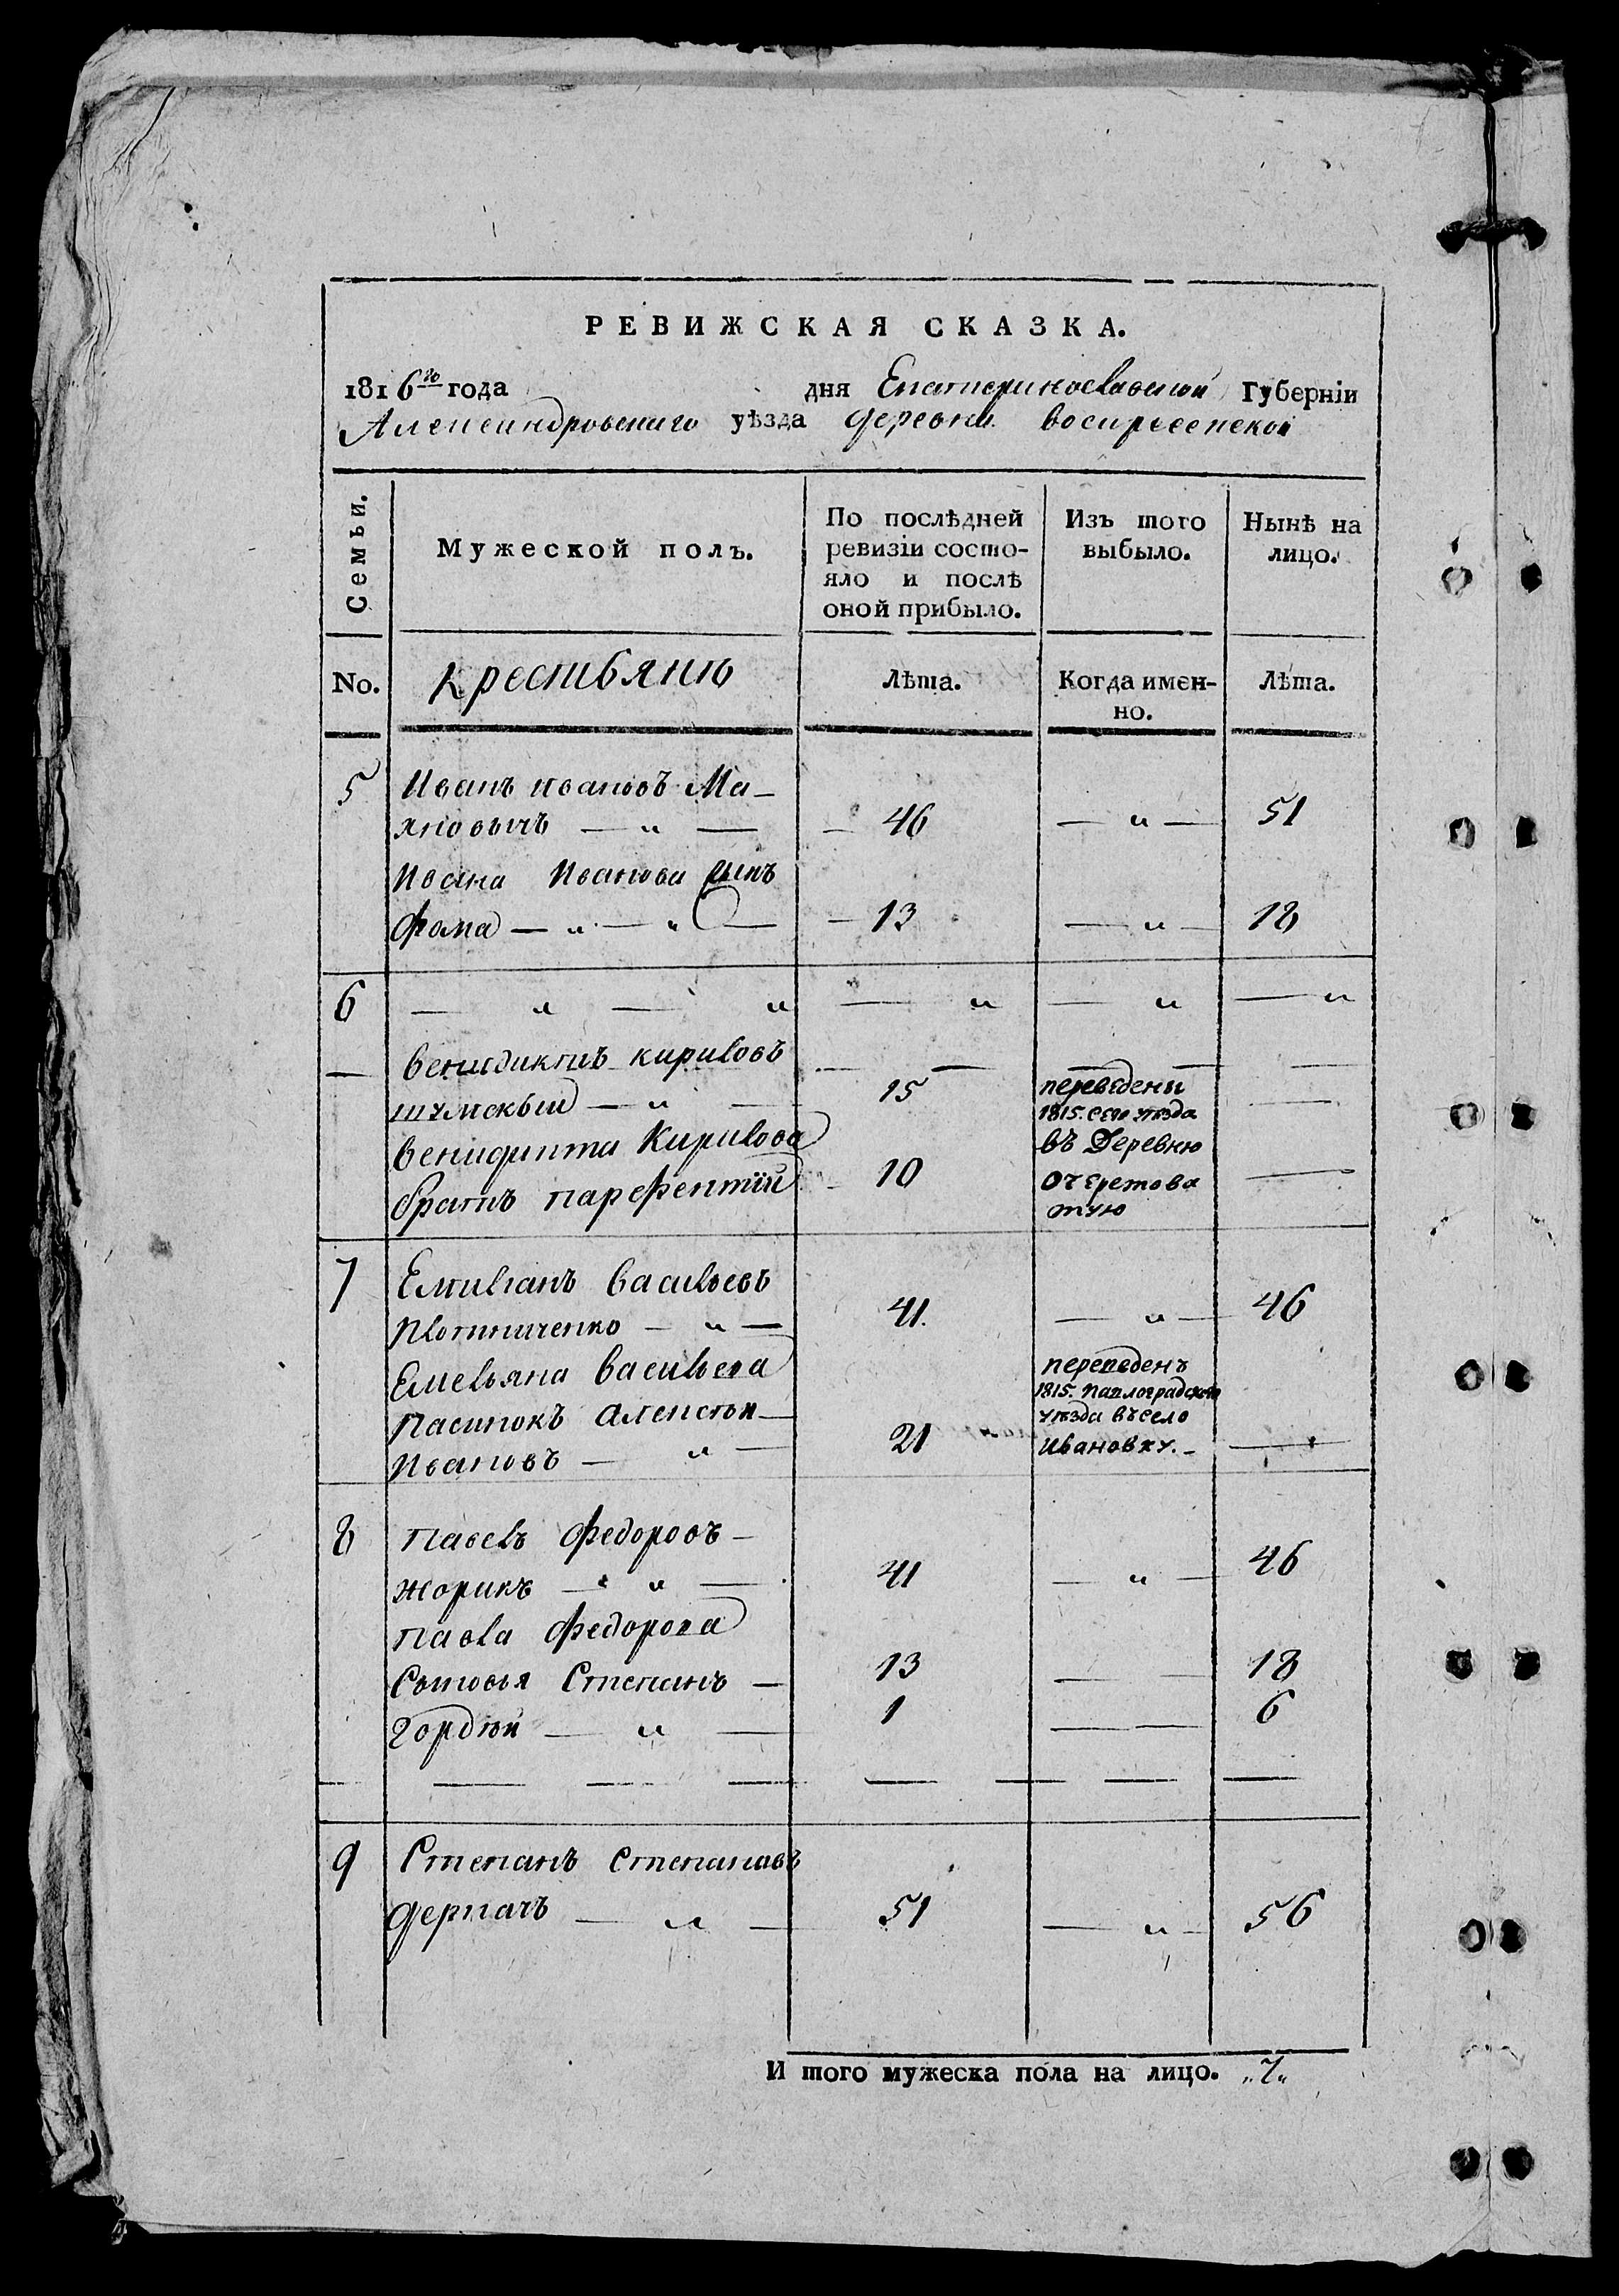 РЕВИЖСКАЯ СКАЗКА.
1816го года дня Екатеринославской Губерніи
Александровскаго уѣзда деревни воскресенской
Семьи.
Мужеской полъ.
По послѣдней ревизіи состо-яло и послѣ оной прибыло.
Изъ того выбыло.
Нынѣ на лицо.
No. крестьянѣ Лѣта. Когда имен-но. Лѣта.
5 Иванъ ивановъ Ма-
хновычъ — „ — 46 — „ — 51
Ивана Иванова сынъ
Фома — „ — „ — 13 — „ — 18
6 — „ — „ — „ — „ — „
венидиктъ кириловъ
шумскый — „ — 15 переведены
1815. сего уѣзда
венидикта Кирилова въ Деревню
братъ парфентій 10 очеретова
тую
7 Емиліанъ васильевъ
Плотниченко — „ — 41. — „ — 46
Емельяна васильева переведенъ
1815. павлоградского
Пасинокъ алексѣй — уѣзда въ село
Ивановъ — „ — 21 ивановку. — —
8 Павелъ Федоровъ —
жорикъ — „ — 41 — „ — 46
Павла Федорова
Сыновья Степанъ — 13 — — 18
Гордѣй — „ — 1 — — 6
9 Степанъ степановъ
деркачъ — „ — 51 — „ — 56
И того мужеска пола на лицо. „7„